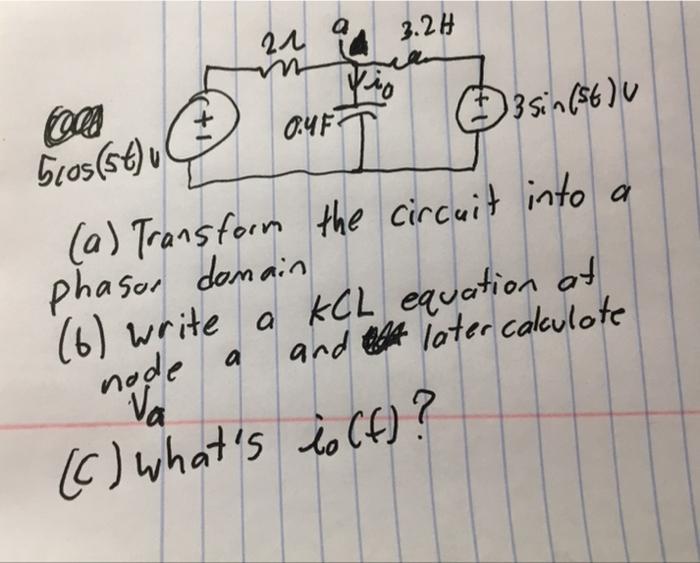 2Ω a 3.2H
i₀
0.4F
3 sin(5t) V
5cos(5t) V
(a) Transform the circuit into a
phasor domain
(b) write a KCL equation at
node a and later calculate
Va
(c) what's i₀(t)?